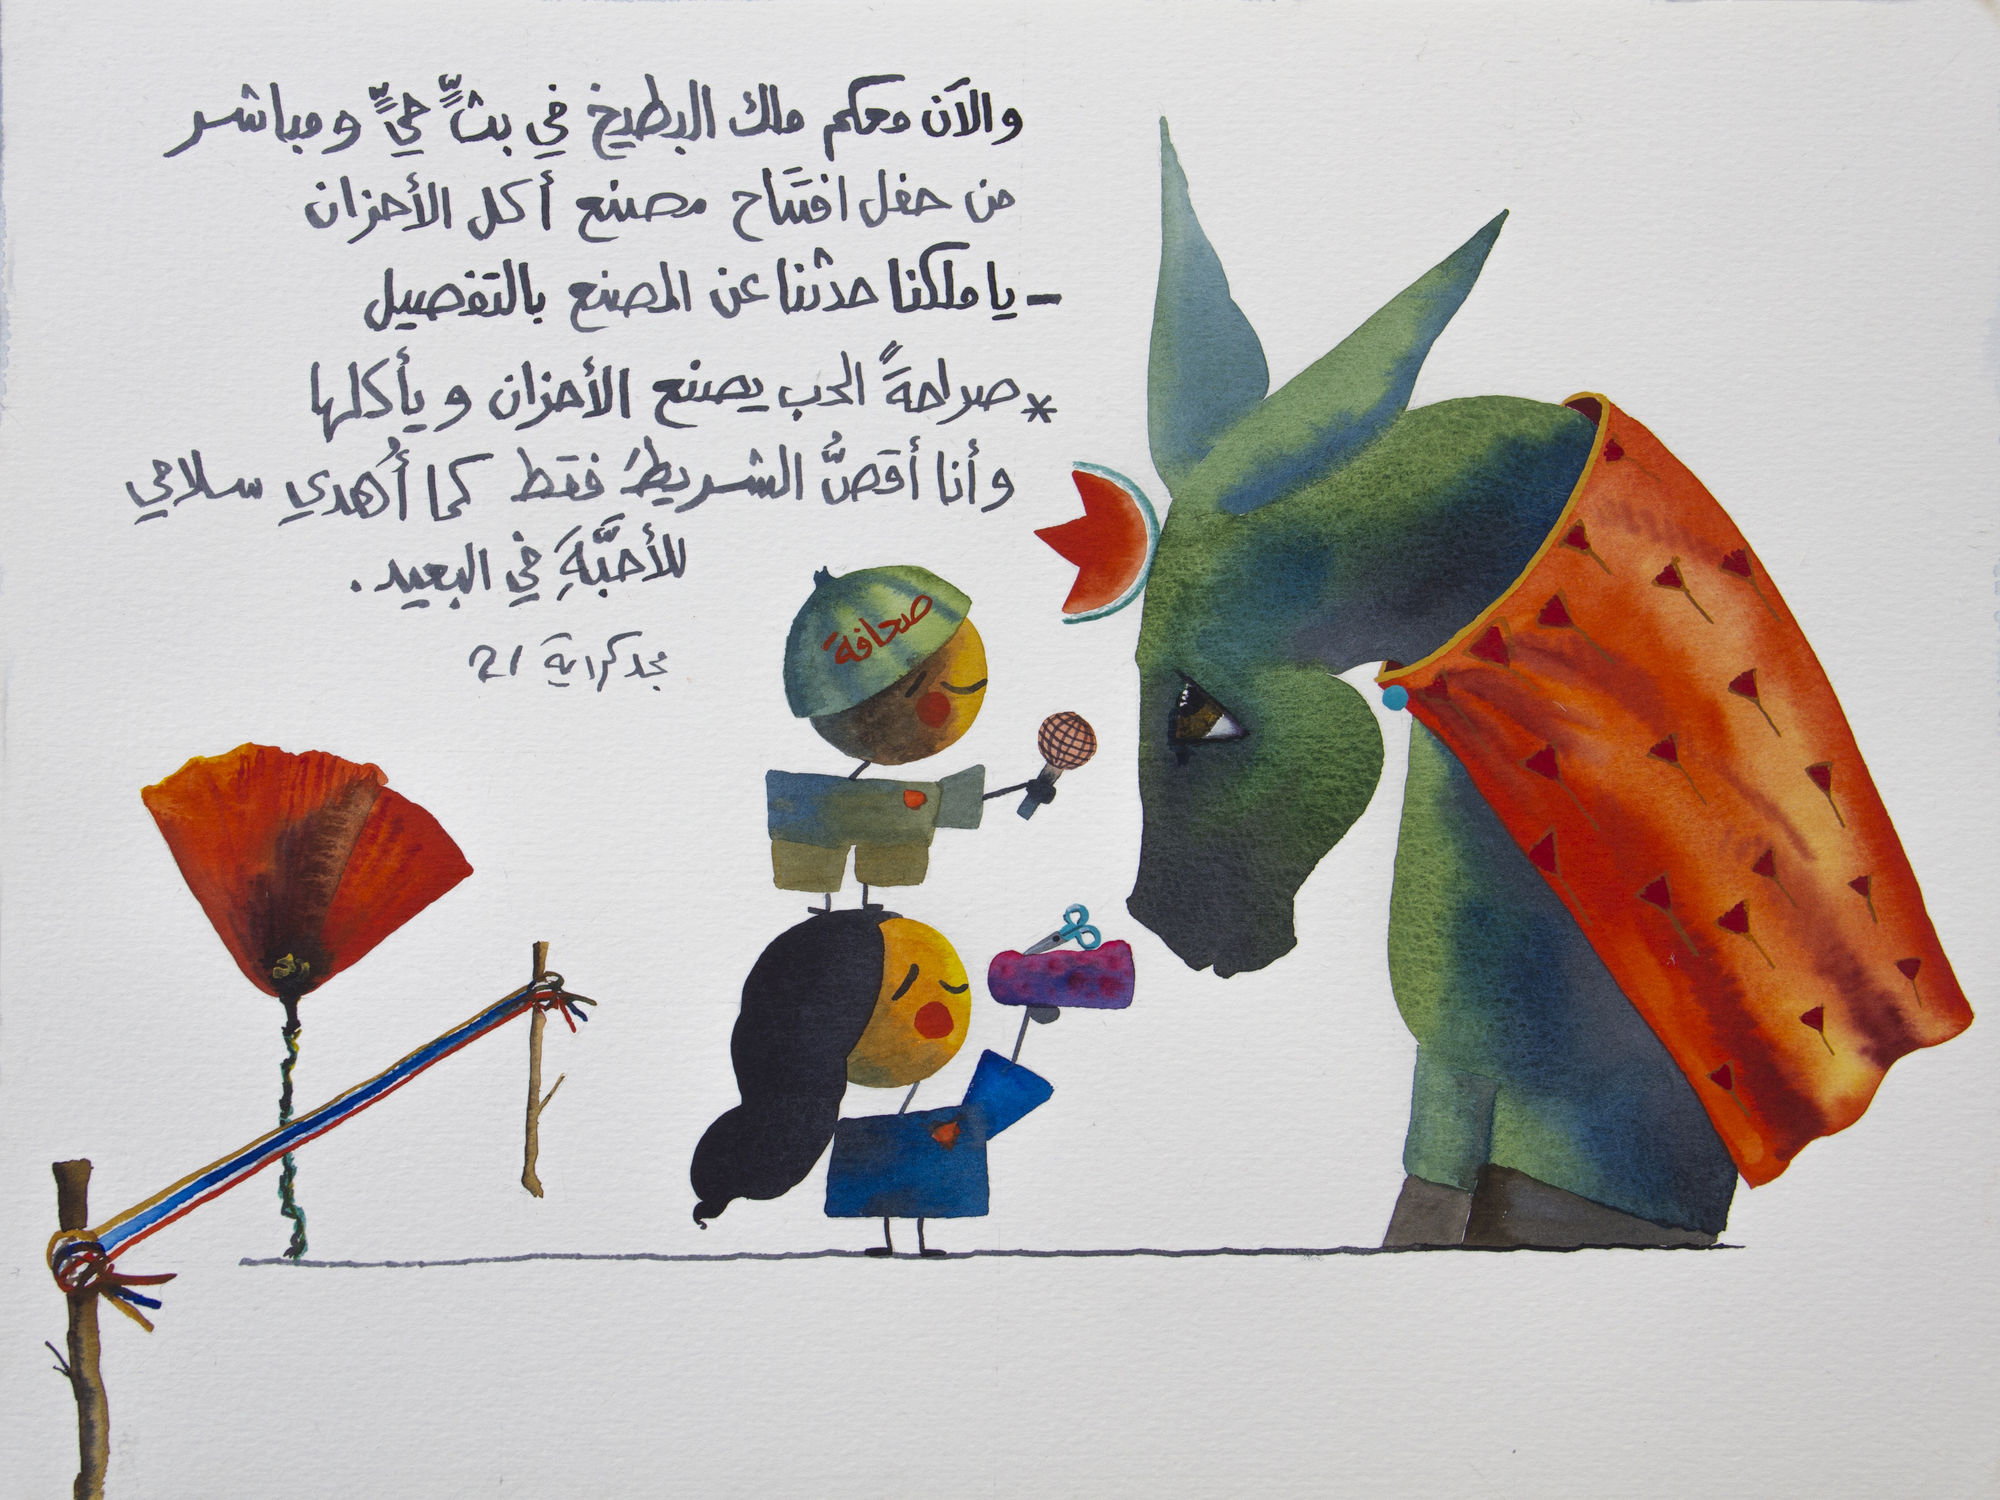 والآن معكم ملك البطيخ في بثٍّ حيٍّ ومباشر
من حفل افتتاح مصنع أكل الأحزان
- يا ملكنا حدثنا عن المصنع بالتفصيل
* صراحةً الحب يصنع الأحزان ويأكلها
وأنا أقصُّ الشريطَ فقط كما أُهدي سلامي
للأحبَّةِ في البعيد.
مجد كراية 21
صحافة